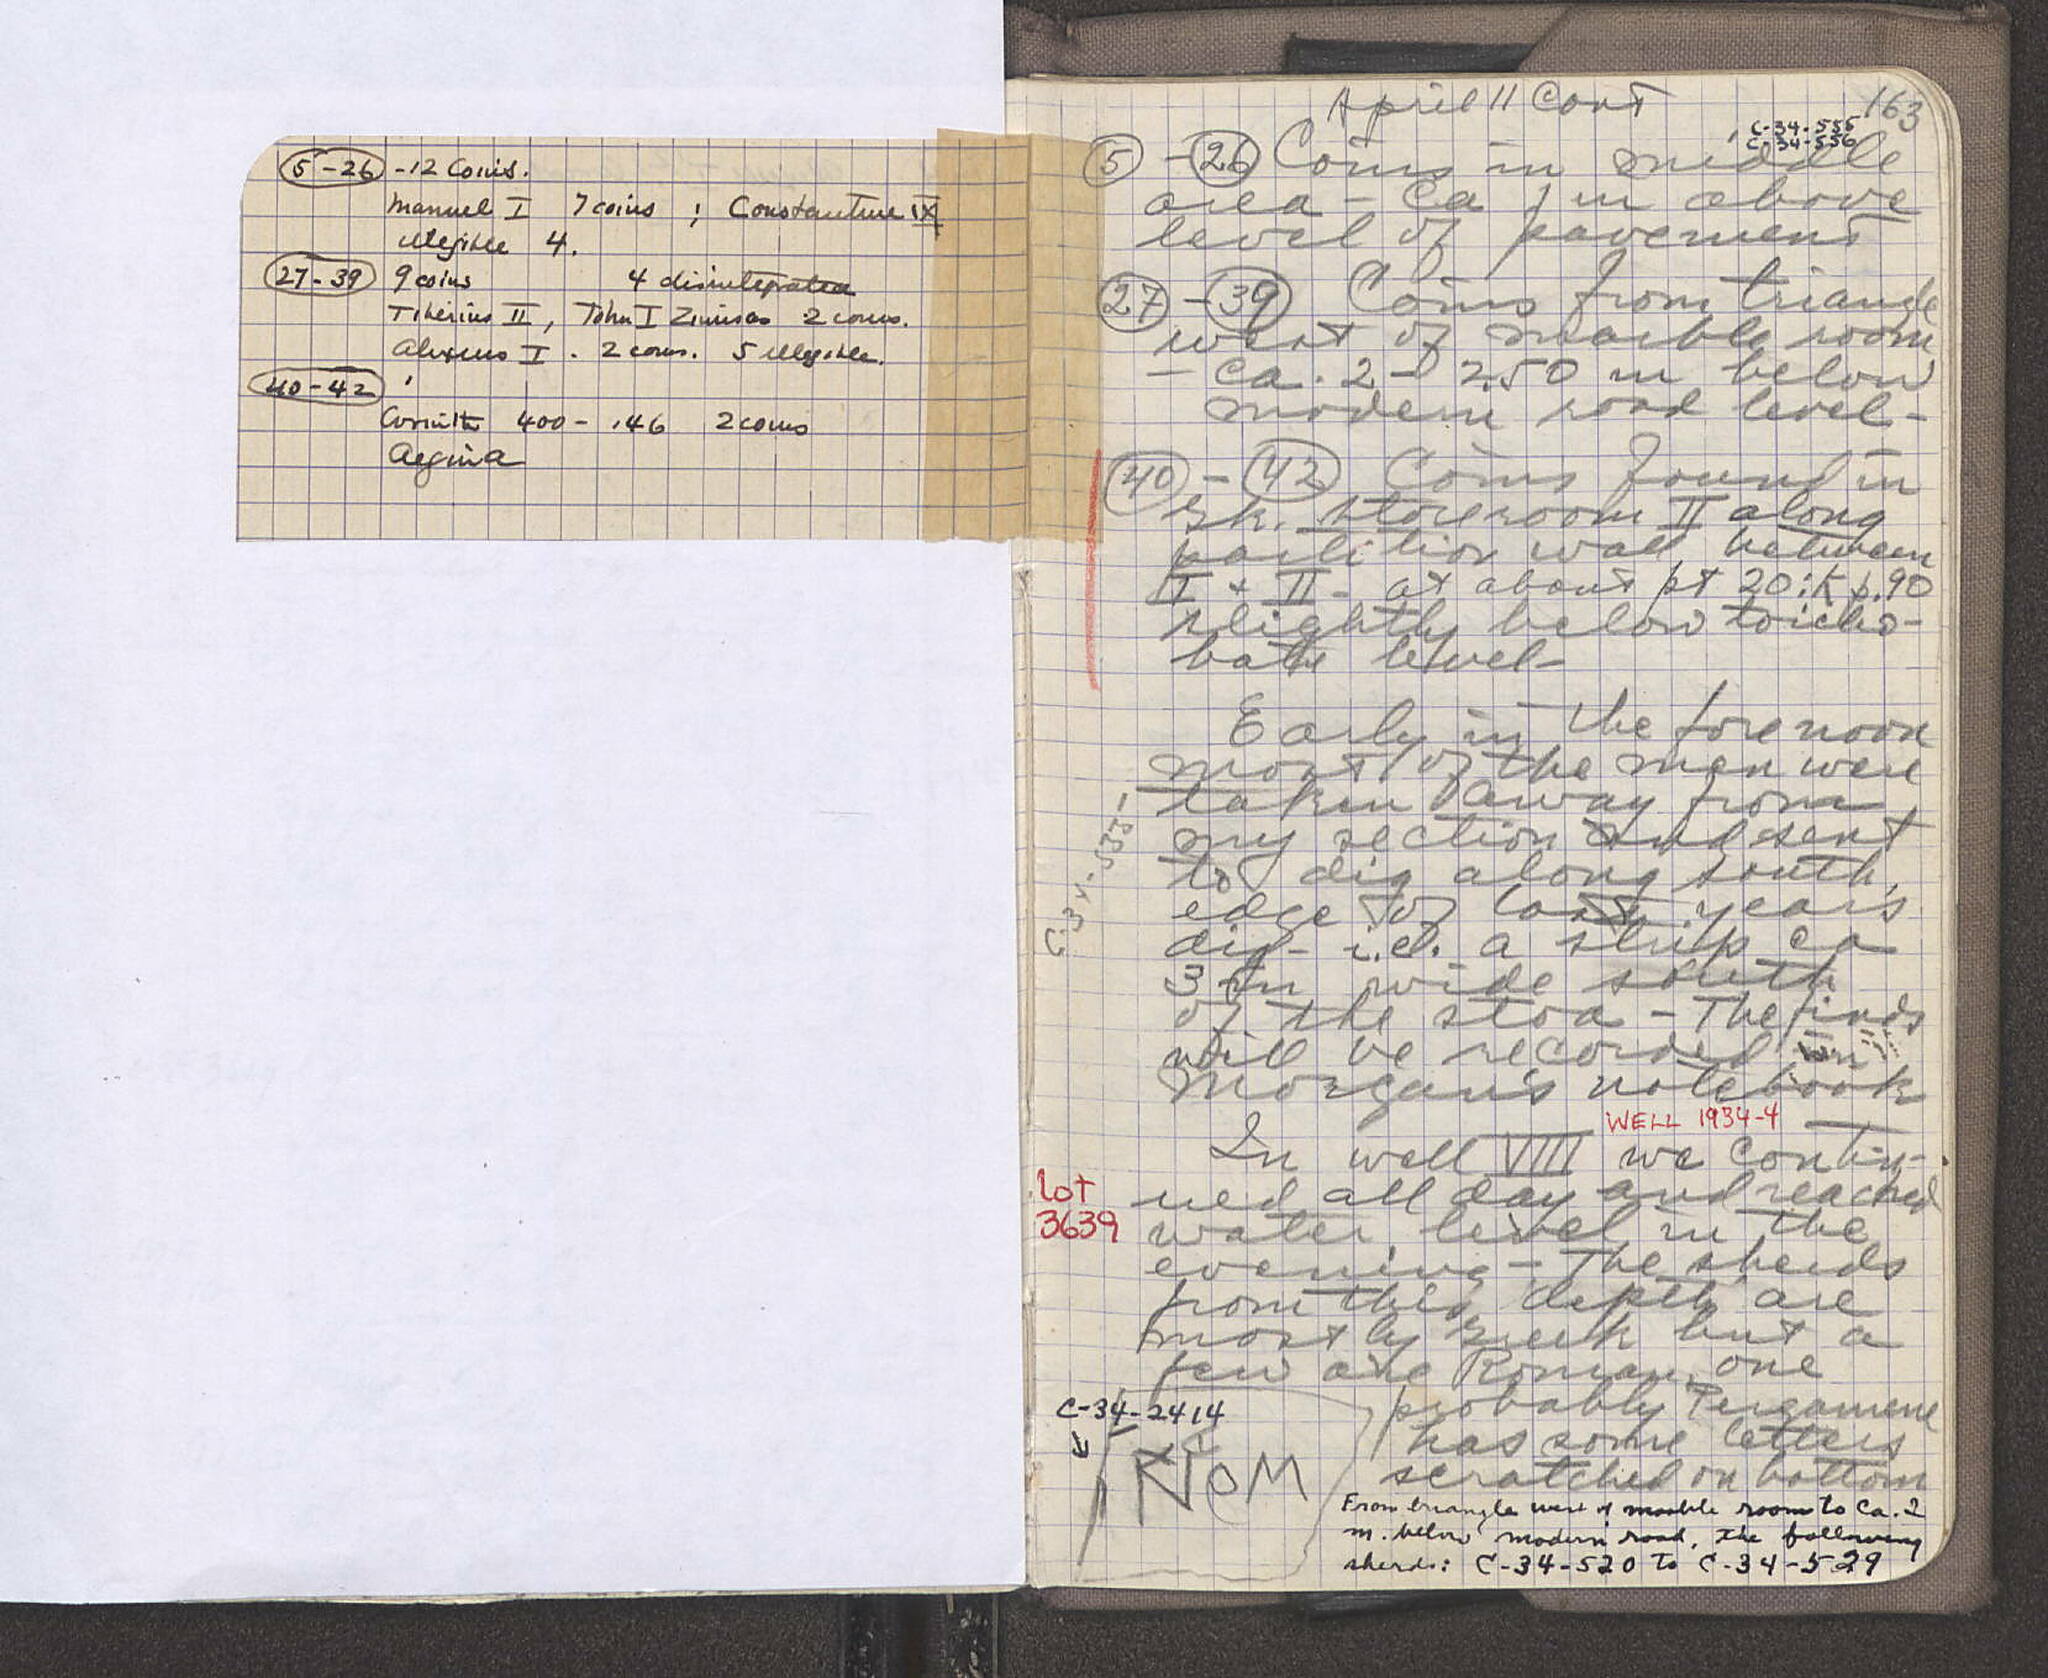 5-26 - 12 Coins.
Manuel I 7 coins ; Constantine IX
illegible 4.
27-39 9 coins 4 disintegrated
Tiberius II, John I Zimisas 2 coins.
Alexius I. 2 coins. 5 illegible.
40-42
Corinth 400 - 146 2 coins
Aegina
April 11 Cont 163
C-34-555
C-34-556
5 - 26 Coins in middle
area - Ca 1 m above
level of pavement
27 - 39 Coins from triangle
west of marble room
- ca. 2 - 2.50 m below
modern road level -
40 - 42 Coins found in
Gk. Storeroom II along
partition wall between
I + II - at about pt 20:K p.90
slightly below toicho-
bate level -
Early in the forenoon
most of the men were
taken away from
my section and sent
to dig along south
edge of last years
dig - i.e. a strip ca
3 m wide south
of the stoa - The finds
will be recorded in
Morgan's notebook
C-34-555-
WELL 1934-4
In well VIII we contin-
ued all day and reached
Lot
3639
water level in the
evening - The sherds
from this depth are
mostly Greek but a
few are Roman, one
probably Pergamene
has some letters
scratched on bottom
C-34-2414
From triangle west of marble room to Ca. 2
m. below modern road, the following
sherds: C-34-520 to C-34-529